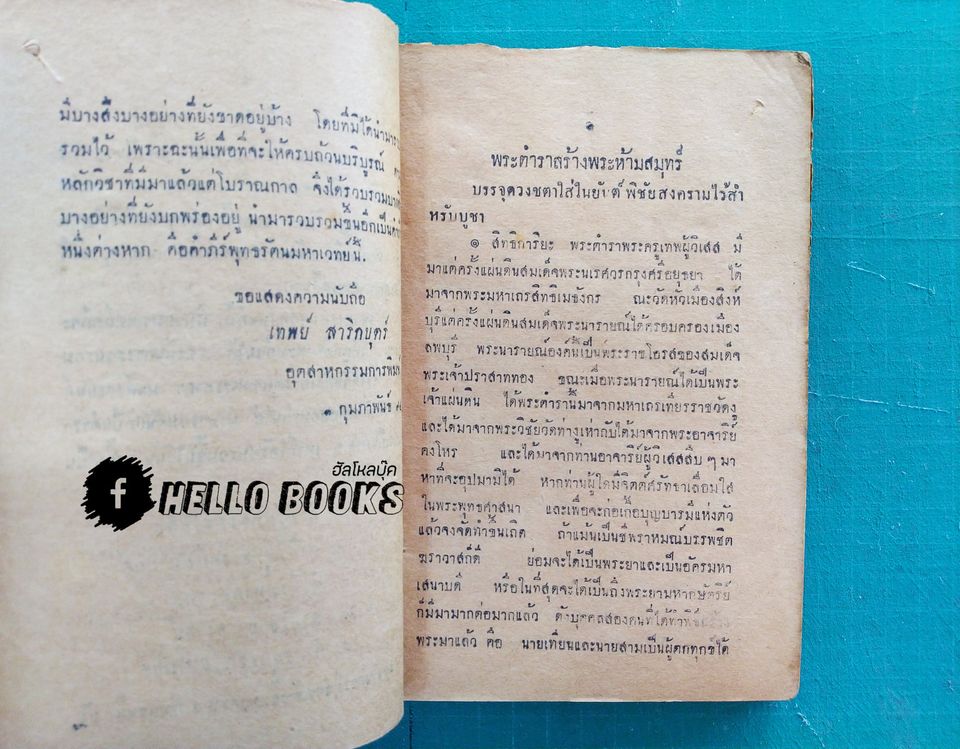 มีบางสิ่งบางอย่างที่ยังขาดอยู่บ้าง โดยที่มิได้นำมา
รวมไว้ เพราะฉะนั้นเพื่อที่จะให้ครบถ้วนบริบูรณ์
หลักวิชาที่มีมาแล้วแต่โบราณกาล จึงได้รวบรวม
บางอย่างที่ยังบกพร่องอยู่ นำมารวบรวมขึ้นอีกเป็น
หนึ่งต่างหาก คือคำภีร์พุทธรัตนมหาเวทย์นี้.
ขอแสดงความนับถือ
เทพย์ สาริกบุตร์
อุตสาหกรรมการพิมพ์
๑ กุมภาพันธ์
ฮัลโหลบุ๊ค
f HELLO BOOKS
๑
พระตำราสร้างพระห้ามสมุทร์
บรรจุดวงชตาใส่ในยันต์ พิชัยสงครามไว้สำ
หรับบูชา
๑ สิทธิการิยะ พระตำราพระครูเทพผู้วิเสส มี
มาแต่ครั้งแผ่นดินสมเด็จพระนเรศวรกรุงศรีอยุธยา ได้
มาจากพระมหาเถรสิทธิเมธังกร ณะวัดหัวเมืองสิงห์
บุรีแต่ครั้งแผ่นดินสมเด็จพระนารายณ์ได้ครอบครองเมือง
ลพบุรี พระนารายณ์องค์นี้เป็นพระราชโอรสของสมเด็จ
พระเจ้าปราสาททอง ขณะเมื่อพระนารายณ์ได้เป็นพระ
เจ้าแผ่นดิน ได้พระตำรานี้มาจากมหาเถรเทียรราชวัดงู
และได้มาจากพระวิชัยวัดท่างูเห่ากับได้มาจากพระอาจาริย์
คงโหร และได้มาจากท่านอาจาริย์ผู้วิเสสสืบ ๆ มา
หาที่จะอุปมามิได้ หากท่านผู้ใดมีจิตต์ศรัทธาเลื่อมใส
ในพระพุทธศาสนา และเพื่อจะก่อเกื้อบุญบารมีแห่งตัว
แล้วจงจัดทำขึ้นเถิด ถ้าแม้นเป็นชีพราหมณ์บรรพชิต
ฆราวาสก็ดี ย่อมจะได้เป็นพระยาและเป็นอัครมหา
เสนาบดี หรือในที่สุดจะได้เป็นถึงพระยามหากษัตริย์
ก็มีมามากต่อมากแล้ว ดังบุคคลสองคนที่ได้ทำพิธีสร้าง
พระมาแล้ว คือ นายเทียนและนายสามเป็นผู้ตกทุกข์ได้